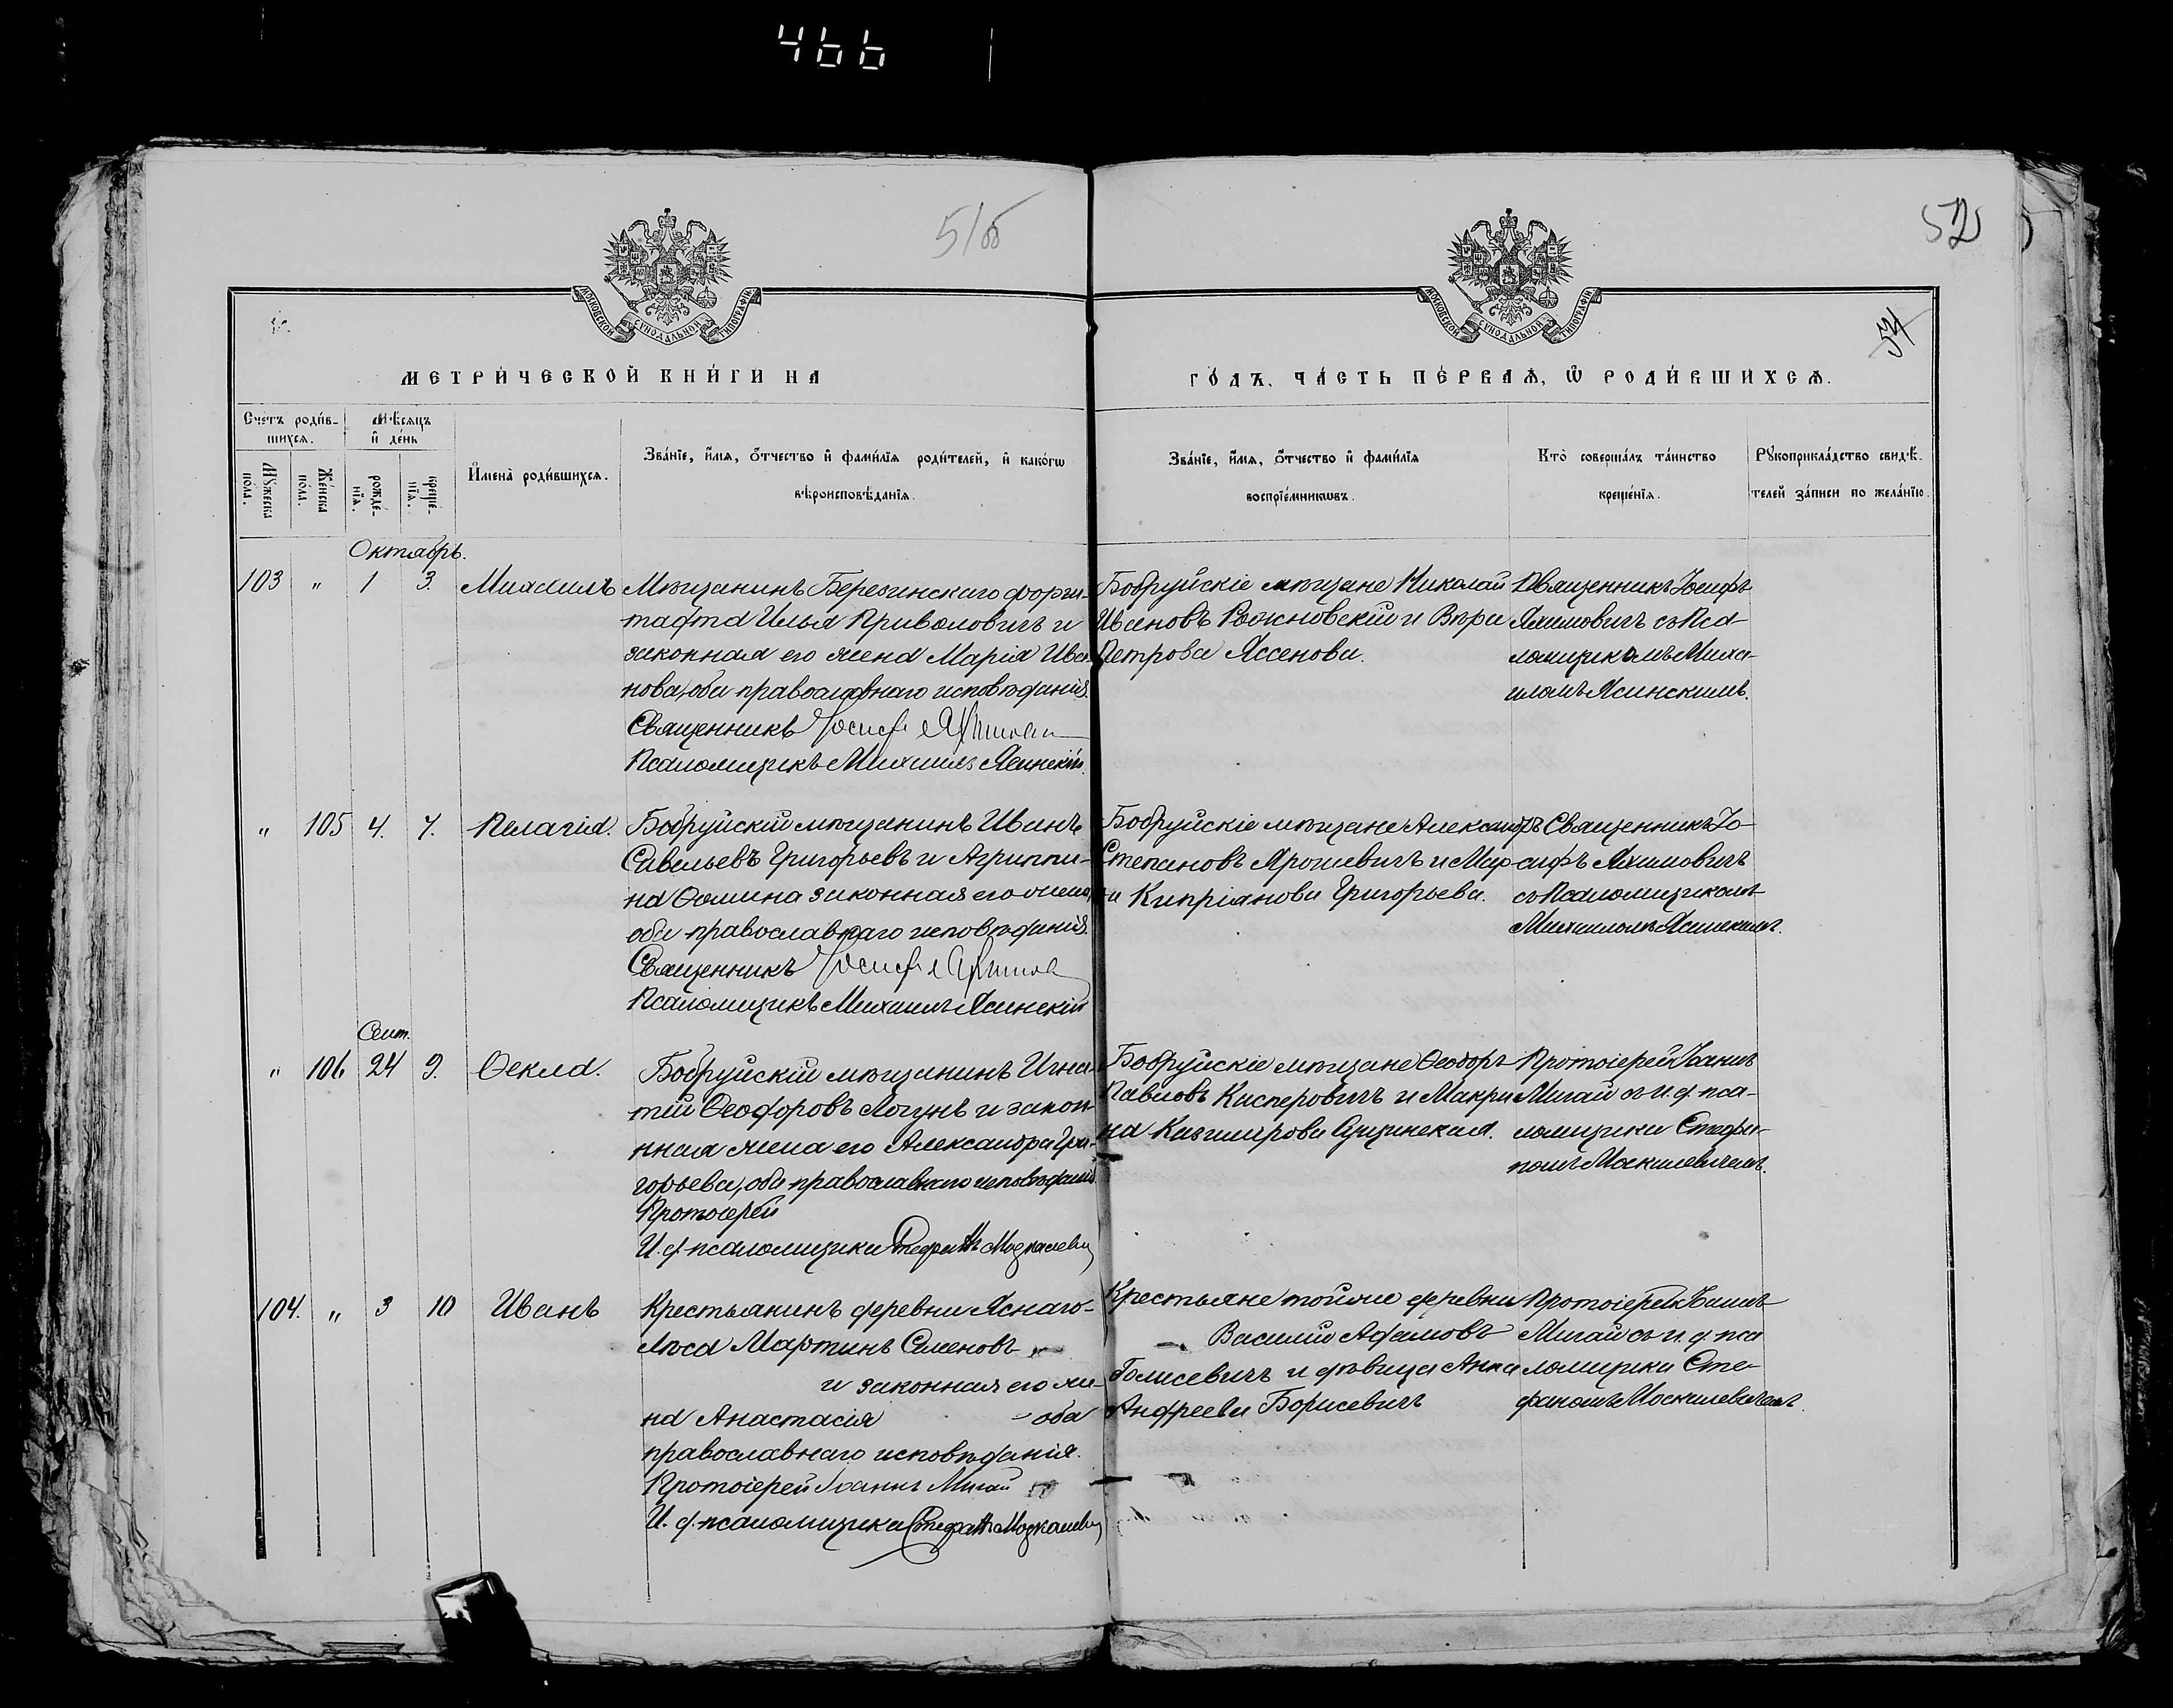 466
51об
52
54
МОСКОВСКОЙ СѴНОДАЛЬНОЙ ТИПОГРАФІИ
МОСКОВСКОЙ СѴНОДАЛЬНОЙ ТИПОГРАФІИ
МЕТРИ́ЧЕСКОЙ КНИ́ГИ НА
ГО́ДЪ, ЧА́СТЬ ПЕ́РВАѦ, Ѡ҆ РОДИ́ВШИХСѦ.
Сче́тъ роди́в-
шихсѧ.
Мѣ́сяцъ
и҆ де́нь
Мꙋ́жеска по́ла.
Же́нска по́ла.
рожде́-
нїѧ.
креще́-
нїѧ.
И҆мена̀ роди́вшихсѧ.
Зва́нїе, и҆́мѧ, ѻ҆́тчество и҆ фами́лїѧ роди́телей, и҆ како́гѡ
вѣроисповѣ́данїѧ.
Зва́нїе, и҆́мѧ, ѻ҆́тчество и҆ фами́лїѧ
воспрїе́мникѡвъ.
Кто̀ соверша́лъ та́инство
креще́нїѧ.
Рꙋкоприкла́дство свидѣ́-
телей за́писи по жела́нїю.
Октябрь.
103 " 1 3. Михаилъ
Мѣщанинъ Березинскаго форш-
тадта Илья Приваловичъ и
законная его жена Марія Ива-
нова, оба православнаго исповѣданія.
Священникъ Іосифъ
Псаломщикъ Михаилъ Ясинскій.
Бобруйскіе мѣщане Николай
Ивановъ Рожновскій и Вѣра
Петрова Яссенова.
Священникъ Іосифъ
Яхимовичъ съ Пса-
ломщикомъ Миха-
иломъ Ясинскимъ.
" 105 4. 7. Пелагія.
Бобруйскій мѣщанинъ Иванъ
Савельевъ Григорьевъ и Агриппи-
на Ѳомина законная его жена,
оба православнаго исповѣданія.
Священникъ Іосифъ
Псаломщикъ Михаилъ Ясинскій
Бобруйскіе мѣщане Александръ
Степановъ Ярошевичъ и Мар-
ѳа Кипріанова Григорьева.
Священникъ Іо-
сифъ Яхимовичъ
съ Псаломщикомъ
Михаиломъ Ясинскимъ.
Сент.
" 106 24 9. Ѳекла.
Бобруйскій мѣщанинъ Игна-
тій Ѳеодоровъ Логунъ и закон-
ная жена его Александра Гри-
горьева, оба православнаго исповѣданія
Протоіерей
И. д. псаломщика Стефанъ
Бобруйскіе мѣщане Ѳеодоръ
Павловъ Касперовичъ и Макри-
на Казимірова Сущинская.
Протоіерей Іоаннъ
Мигай съ и. д. пса-
ломщика Стефа-
номъ
104. " 3 10 Иванъ
Крестьянинъ деревни Яснаго-
Лѣса Мартинъ Семеновъ
и законная его же-
на Анастасія - оба
православнаго исповѣданія.
Протоіерей Іоаннъ Мигай
И. д. псаломщика Стефанъ
Крестьяне тойже деревни
Василій Адамовъ
Голисевичъ и дѣвица Анна
Андреева Борисевичъ
Протоіерей Іоаннъ
Мигай съ и. д. пса
ломщика Сте-
фаномъ